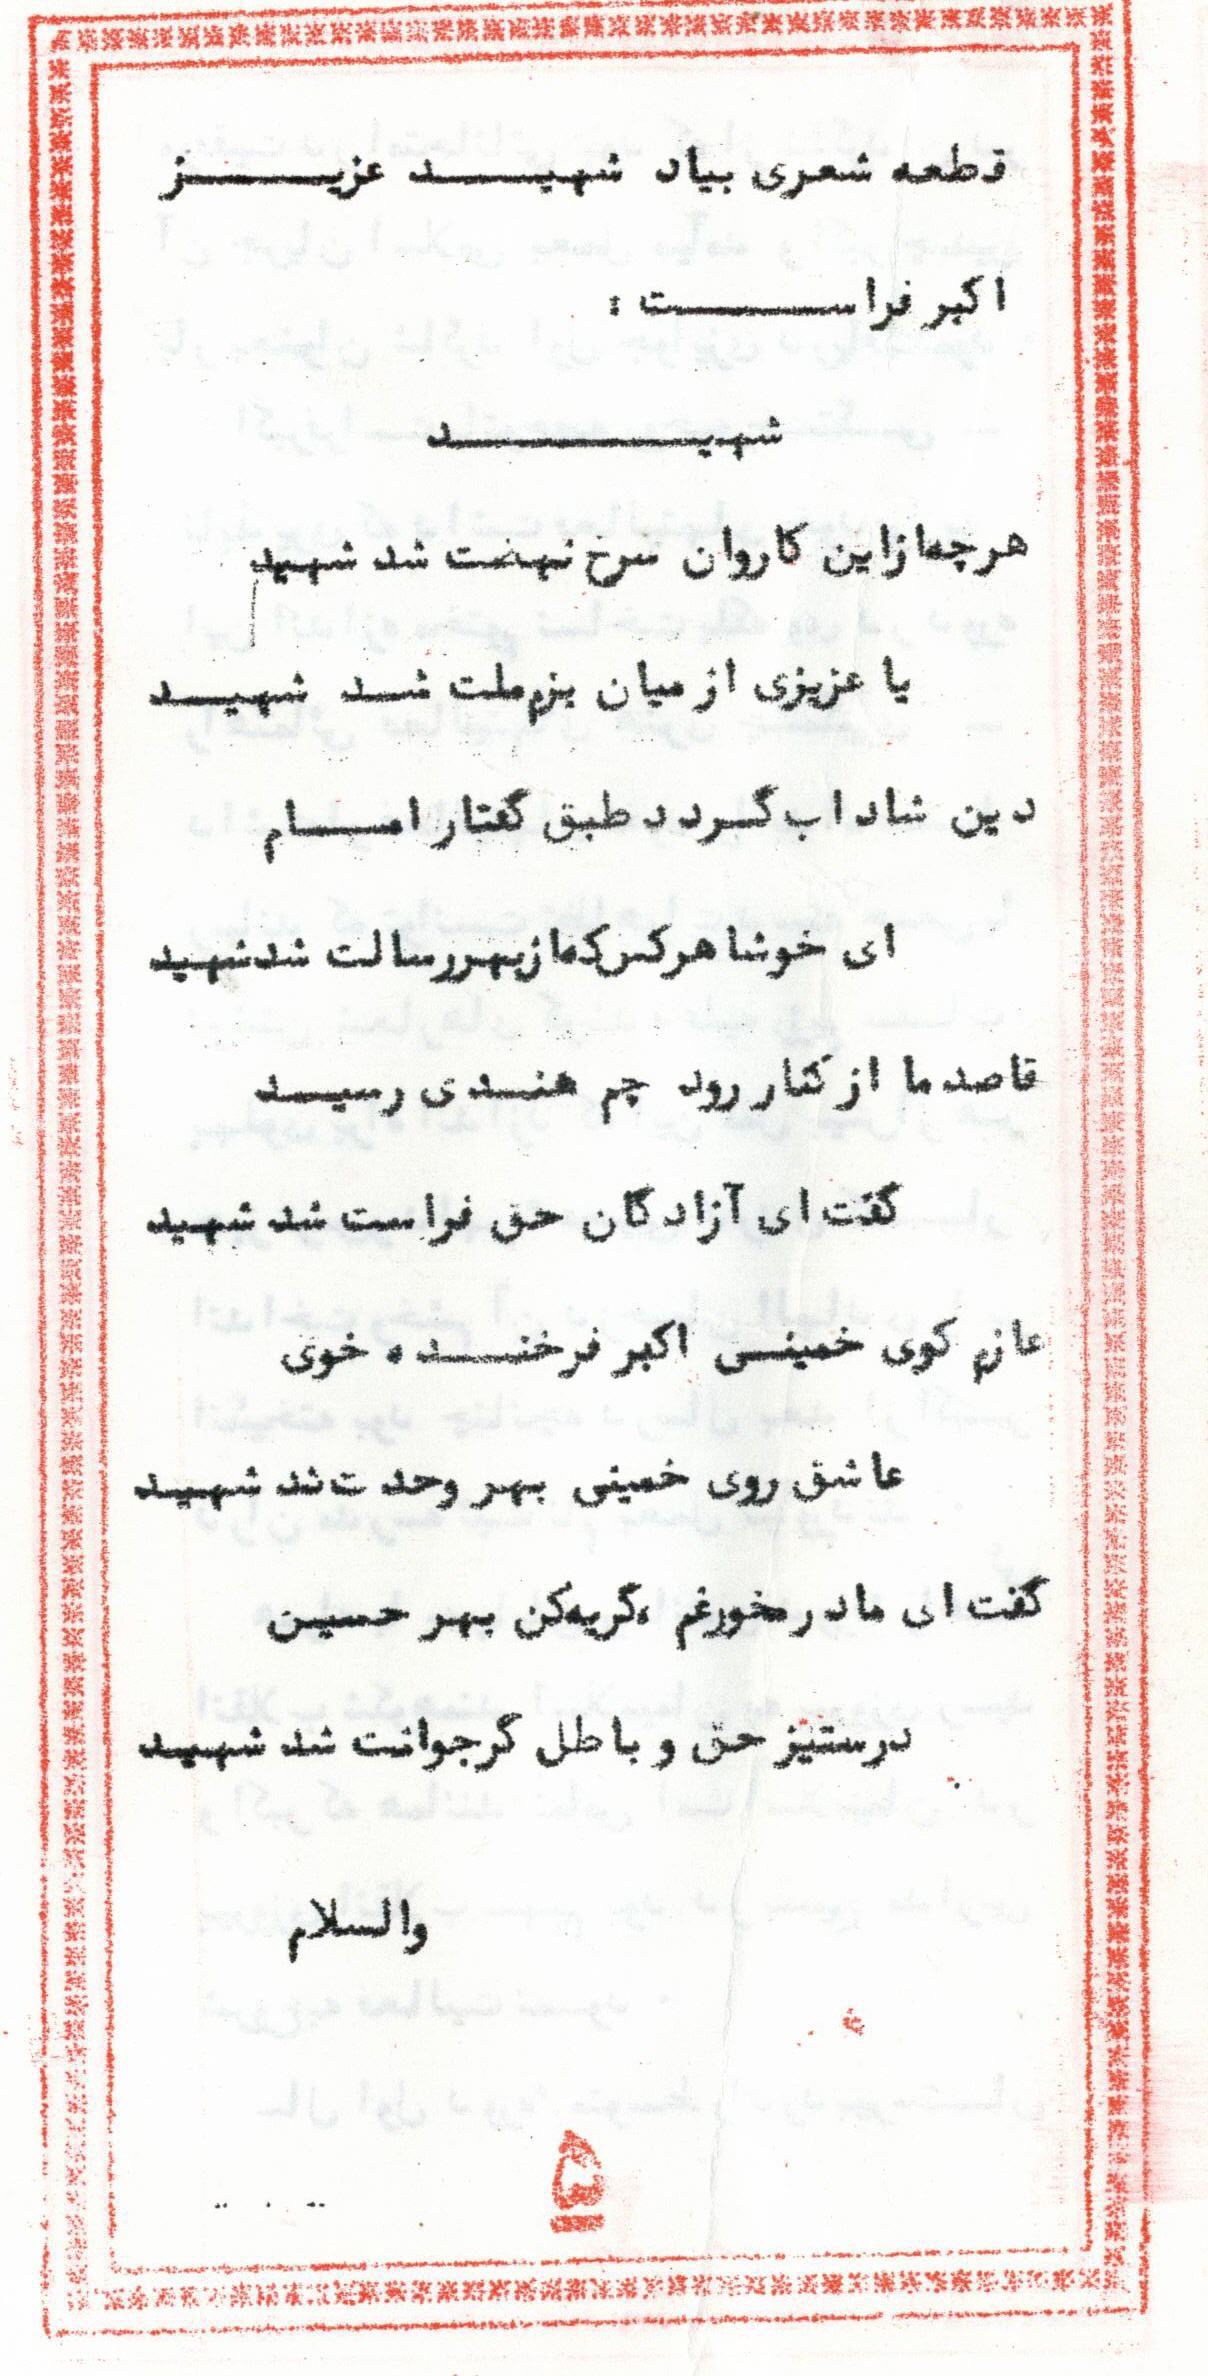 قطعه شعری بیاد شهید عزیز
اکبر فراست :
شهید
هرچه‌ازاین کاروان سرخ نهضت شد شهید
یا عزیزی از میان بزم‌ملت شد شهید
دین شاداب گردد طبق گفتار امام
ای خوشا هرکس‌که‌ازبهررسالت شدشهید
قاصد ما از کنار رود چم هندی رسید
گفت ای آزادگان حق فراست شد شهید
عازم کوی خمینی اکبر فرخنده خوی
عاشق روی خمینی بهر وحدت شد شهید
گفت ای مادرمخورغم ،گریه‌کن بهر حسین
درستیز حق و باطل گرجوانت شد شهید
والسلام
۵